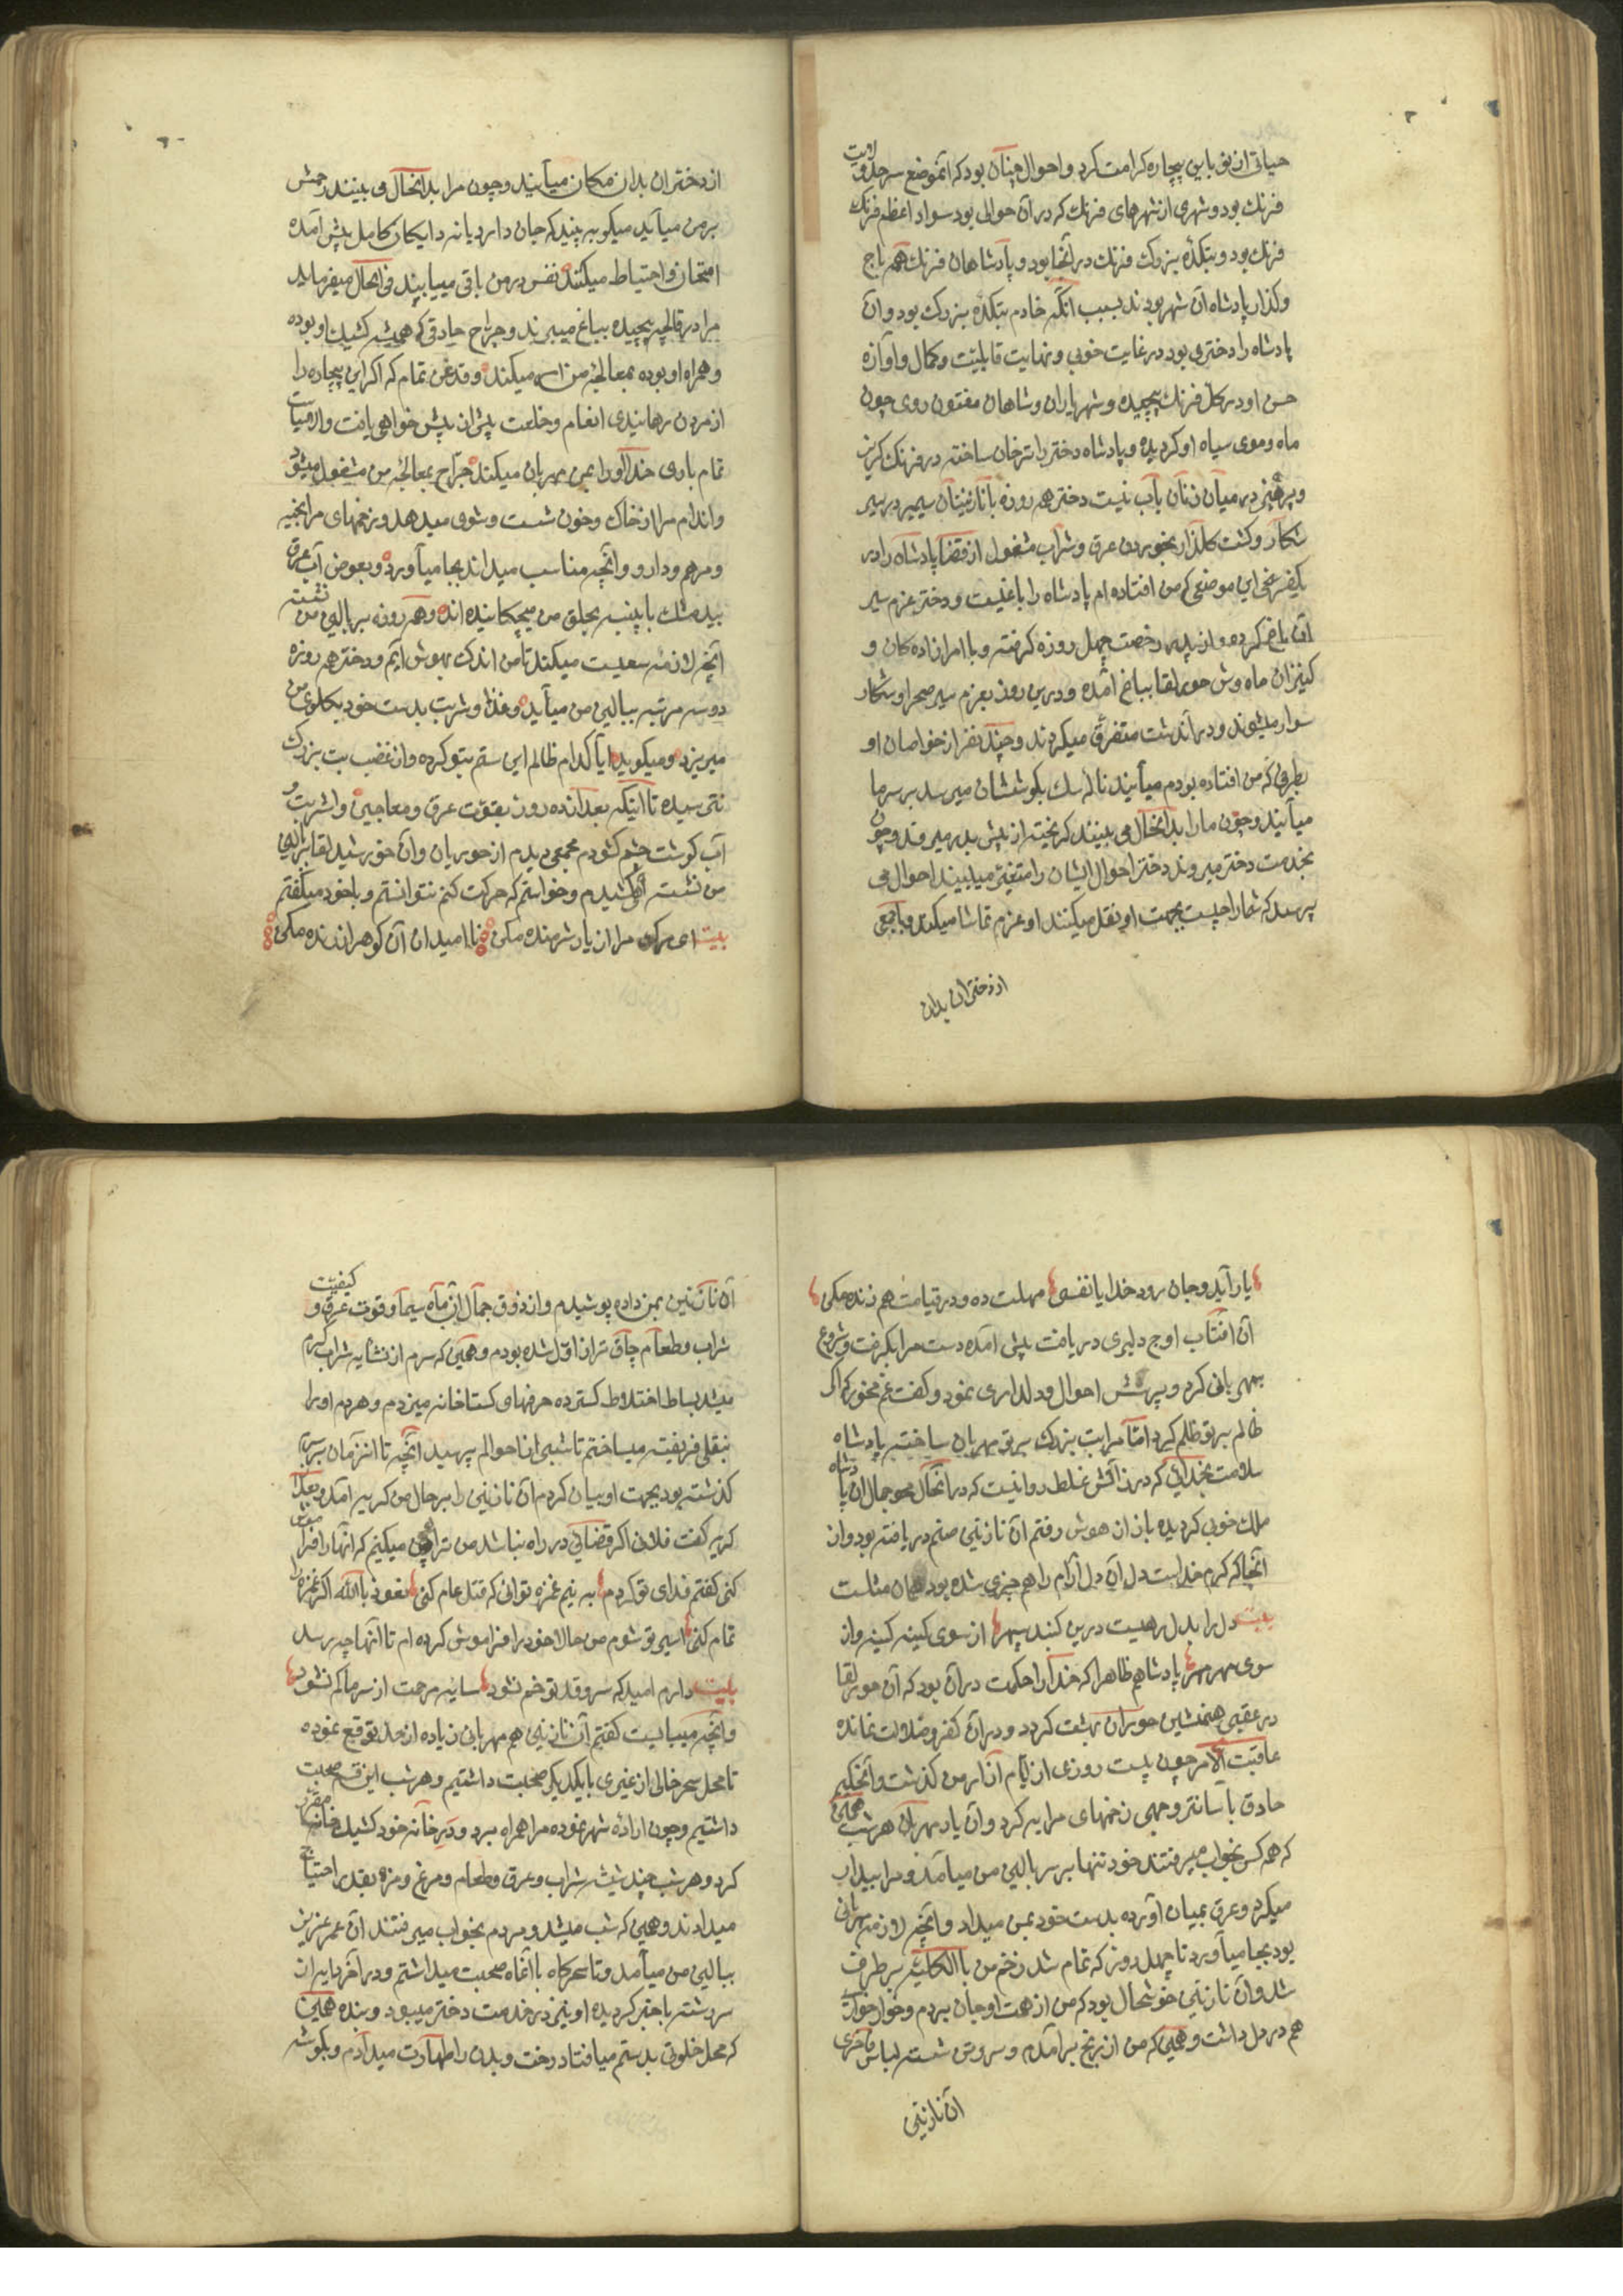 حیاتی از نو باین بیچاره کرامت کرد و احوال چنان بود که آنموضع سرحد ولایت
فرنک بود و شهری از شهرهای فرنک که در آن حوالی بود سواد اعظم فرنک
فرنک بود و بتکدهٔ بزرک فرنک در آنجا بود و پادشاهان فرنک همه باج
و کذار پادشاه آن شهر بودند بسبب آنکه خادم بتکده بزرک بود و آن
پادشاه را دختری بود در غایت خوبی و نهایت قابلیت و کمال و آوازه
حسن او در کل فرنک پیچیده و شهریاران و شاهان مفتون روی چون
ماه و موی سیاه او کردیده و پادشاه دختر را ترخان ساخته در فرنک کریز
و پرهیز در میان زنان باب نیست دختر هم روزه با نازنینان سیمبر در سیر
شکار و کشت کلذار بخوردن عرق و شراب مشغول از قضا پادشاه را در
یکفرسخی این موضعی که من افتاده ام پادشاه را باغیست و دختر عزم سیر
آن باغ کرده و از پدر رخصت چهل روزه کرفته و با امرازاده کان و
کنیزان ماه وش حور لقا بباغ آمده و درین روز بعزم سیر صحرا و شکار
سوار میشوند و در آن دشت متفرق میکردند و چند نفر از خواصان او
بطرفی که من افتاده بودم میآیند ناله سک بکوششان میرسد بر سر ما
میآیند و چون ما را بدانحال می بینند کریخته از پیش بدر میروند و چون
بخدمت دختر میروند دختر احوال ایشان را متغیر میبیند احوال می
پرسد که شما را چیست بجهت او نقل میکنند او عزم تماشا میکند و با جمعی
از دختران بدان
از دختران بدان مکان میآیند و چون مرا بدانحال می بینند رحمش
بر من میآید میکوید ببینید که جان دارد یا نه دایکان کامل پیش آمده
امتحان و احتیاط میکنند نفس در من باقی میابند فی الحال میفرماید
مرا در قالیچه پیچیده بباغ میبرند و جراح حاذقی که همیشه کشیک او بوده
و همراه او بوده بمعالجهٔ من امر میکند و قدغن تمام که اکر این بیچاره را
از مردن رهانیدی انعام و خلعت پیش از پیش خواهی یافت و از میان
تمام باری خدا او را بمن مهربان میکند جراح بمعالجهٔ من مشغول میشود
و اندام مرا از خاک و خون شست و شوی میدهد و زخمهای مرا بخیه
و مرهم و دارو و آنچه مناسب میداند بجا میآورد و بعوض آب عرق
بید مشک با پنبه بحلق من میچکانیده اند و هر روزه بر بالین من نشسته
آنچه لازمه سعیست میکند تا من اندک بهوش آیم و دختر هم روزه
دو سه مرتبه ببالین من میآید و غذا و شربت بدست خود بکلوی من
میریزد و میکوید آیا کدام ظالم این ستم بتو کرده و از غضب بت بزرک
نترسیده تا اینکه بعد از ده روز بقوت عرق و معاجین و اشربت و
آب کوشت چشم کشودم مجمعی دیدم از حوریان و آن خورشید لقا بر بالین
من نشسته آهی کشیدم و خواستم که حرکت کنم نتوانستم و با خود میکفتم
بیت ای مرک مرا از یار شرمنده مکن نا امید از آن کوهر ارزنده مکن
یار آید و جان رود خدایا نفسی مهلت ده و در قیامت هم زنده مکن
آن افتاب اوج دلبری دریافت پیش آمده دست مرا بکرفت و شروع
بمهربانی کرد و پرسش احوال و دلداری نمود و کفت غم مخور که اکر
ظالم بر تو ظلم کرد اما مرا بت بزرک بر تو مهربان ساخته پادشاه
سلامت بخدائی که در رزاقیش غلط روا نیست که در آنحال محو جمال آن پادشاه
ملک خوبی کردیده باز از هوش رفتم آن نازنین صنم دریافته بود و از
آنجا که کرم خداست دل آن دل آرام را هم چیزی شده بود همان مثلست
بیت دل را بدل رهیست درین کنبد سپهر از سوی کینه کینه و از
سوی مهر مهر پادشاهم ظاهرا که خدا را حکمت در آن بود که آن حور لقا
در عقبی همنشین حوران بهشت کردد و در آن کفر و ضلالت نمانده
عاقبت الامر چون بیست روزی از ایام آزار من کذشت و آن حکیم
حاذق باسانترو جهی زخمهای مرا به کرد و آن یار مهربان هر شب همین
که هم کس بخواب میرفتند خود تنها بر سر بالین من میآمد و مرا بیدار
میکرد و عرق بمیان آورده بدست خود بمن میداد و آنچه لازمهٔ مهربانی
بود بجا میآورد تا چهل روز که تمام شد زخم من بالکلیه بر طرف
شد و آن نازنین خوشحال بود که من از همت او جان بردم و خوار خوار
هم در دل داشت و همین که من از رنج برآمدم و سر و تن شسته لباس فاخری
آن نازنین
آن نازنین بمن داده پوشیدم و از ذوق جمال آن ماه سیما و قوت عرق و کیفیت
شراب و طعام چاق تر از اول شده بودم و همین که سرم از نشاء شراب کرم
میشد بساط اختلاط کسترده حرفهای کستاخانه میزدم و هر دم او را
بنقلی فریفته میساختم تا شبی از احوالم پرسید آنچه تا آنزمان بر سرم
کذشته بود بجهت او بیان کردم آن نازنین را بر حال من کریه آمد و بعد از
کریه کفت فلانی اکر قضائی در راه نباشد من ترا چنان میکنم که آنها را فراموش
کنی کفتم فدای تو کردم به نیم غمزه توانی که قتل عام کنی نعوذ بالله اکر غمزه را
تمام کنی اسیر تو شوم من حالا خود را فراموش کرده ام تا آنها چه رسد
بیت دارم امید که سرو قد تو خم نشود سایهٔ مرحمت از سر ما کم نشود
و آنچه میبایست کفتم آن نازنین هم مهربانی زیاده از حد توقع نموده
تا محل سحر خالی از غیری با یکدیکر صحبت داشتیم و هر شب این قسم صحبت
داشتیم و چون ارادهٔ شهر نموده مرا همراه برد و در خانه خود کشیک خانه مقرر
کرد و هر شب چند شیشه شراب و عرق و طعام و مرغ و مزه بقدر احتیاج
میدادند و همین که شب میشد و مردم بخواب میرفتند آن عمر عزیز
ببالین من میآمد و تا سحرکاه باآنماه صحبت میداشتم و در آخر دایه از آن
سر رشته با خبر کردیده او نیز در خدمت دختر میبود و بنده همین
که محل خلوتی بدستم میافتاد رخت و بدن را طهارت میدادم و بکوشه